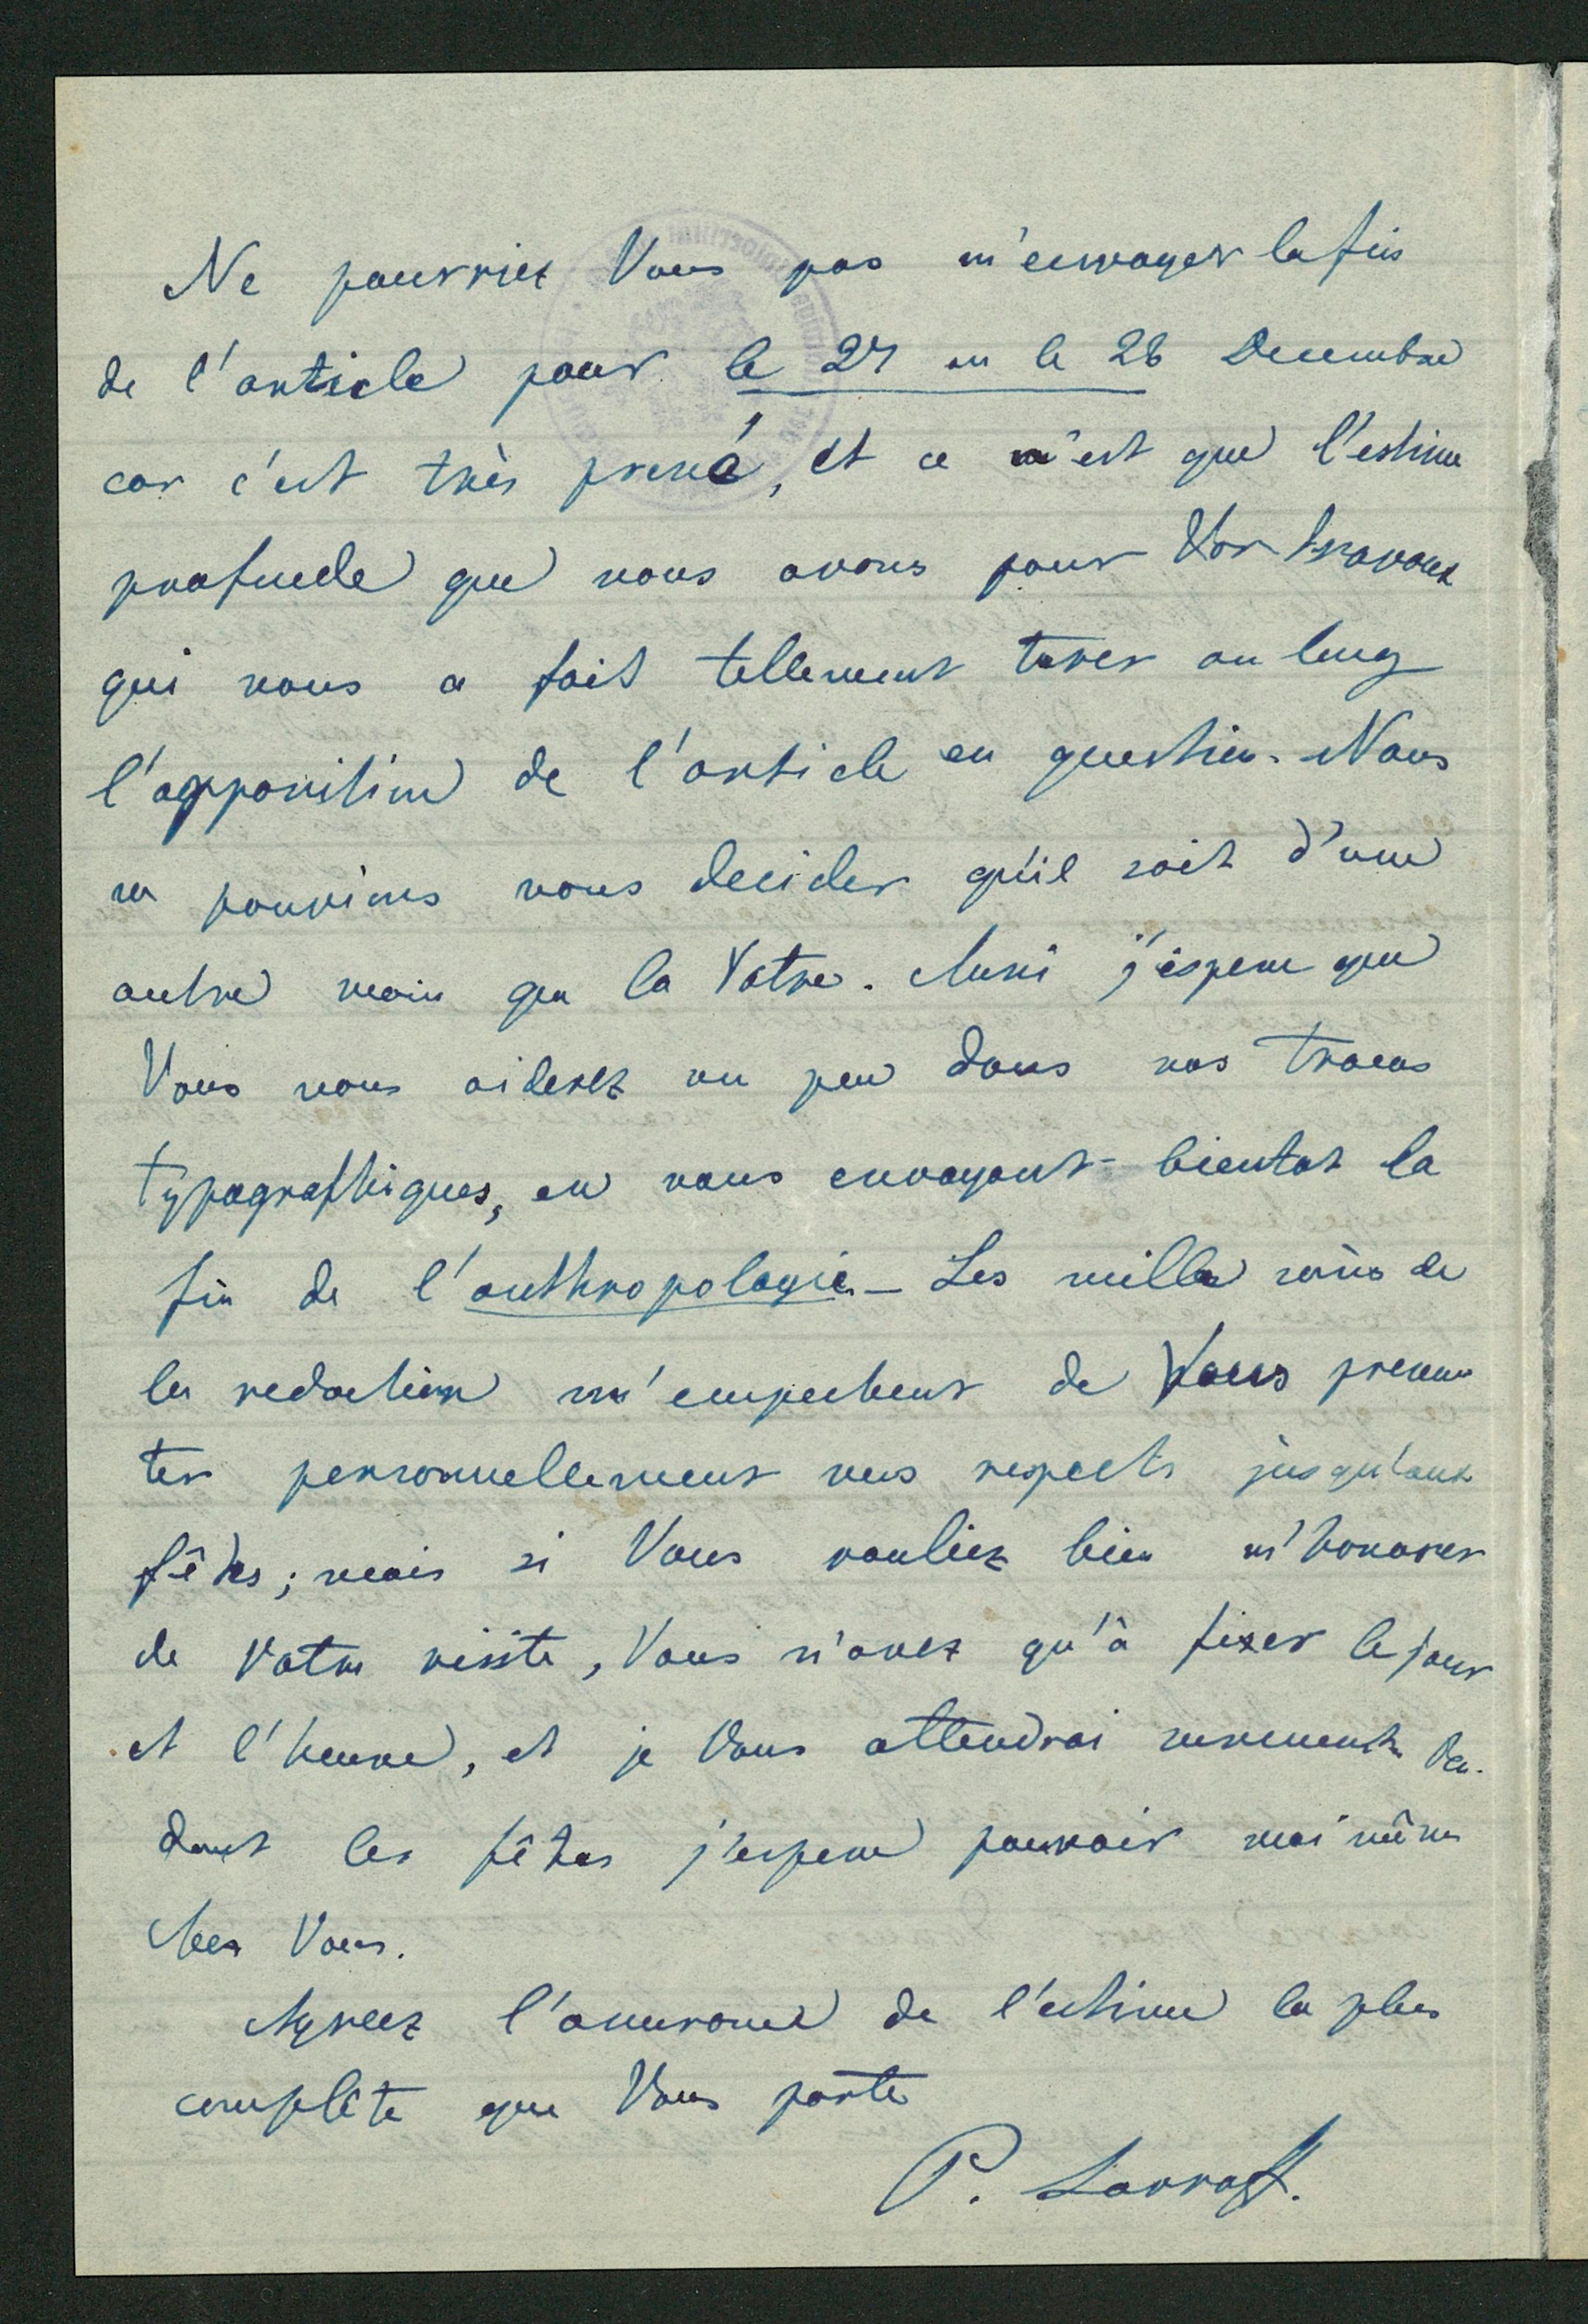 Ne pourriez Vous pas m'envoyer la fin
de l'article pour le 27 ou le 28 Decembre
car c'est très pressé, et ce n'est que l'estime
profonde que nous avons pour Vos travaux
qui nous a fait tellement tirer en long
l'apparition de l'article en question. Nous
ne pouvions nous decider qu'il soit d'une
autre main que la Votre. Aussi j'espere que
Vous nous aiderez un peu dans nos tracas
typographiques, en nous envoyant bientot la
fin de l'anthropologie. – Les mille soins de
la redaction m'empechent de Vous presen
ter personnellement mes respects jusqu'aux
fêtes; mais si Vous vouliez bien m'honorer
de Votre visite, Vous n'avez qu'à fixer le jour
et l'heure, et je Vous attendrai surement. Pen-
dant les fêtes j'espere pouvoir moi même
chez Vous.
Agreez l'assurance de l'estime la plus
complète que Vous porte
P. Lavroff.